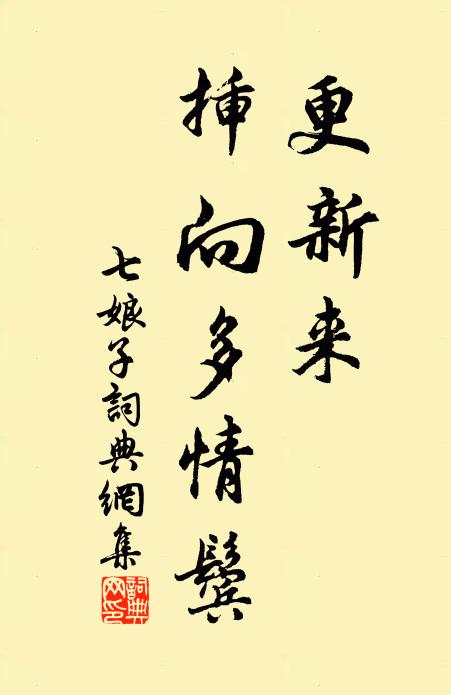 更新来
插向多情鬓
七娘子詞典網集
詞典網印